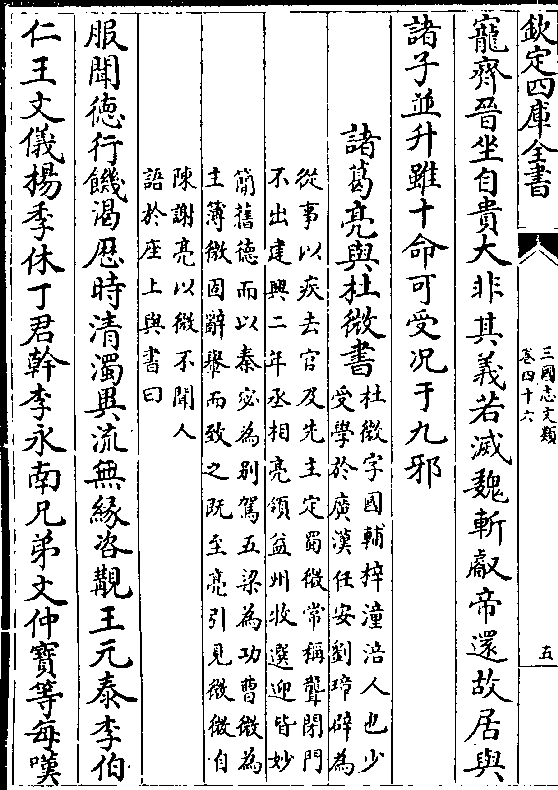 欽定四庫全書
三國志文類
卷四十六
五
寵齊晉坐自貴大非其義若滅魏斬叡帝還故居與
諸子並升雖十命可受况于九邪
諸葛亮與杜微書
杜微字國輔梓潼涪人也少
受學於廣漢任安劉璋辟為
從事以疾去官及先主定蜀微常稱聾閉門
不出建興二年丞相亮領益州牧選迎皆妙
簡舊德而以秦宓為别駕五梁為功曹微為
主簿微固辭轝而致之既至亮引見微微自
陳謝亮以微不聞人
語於座上與書曰
服聞徳行饑渴厯時清濁異流無緣咨覯王元泰李伯
仁王文儀楊季休丁君幹李永南兄弟文仲寳等毎嘆